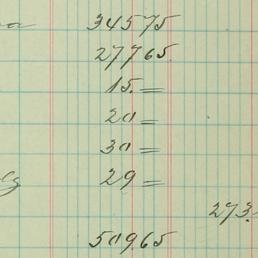 34575
27765.
15.=
20=
30=
29=
273.
50965